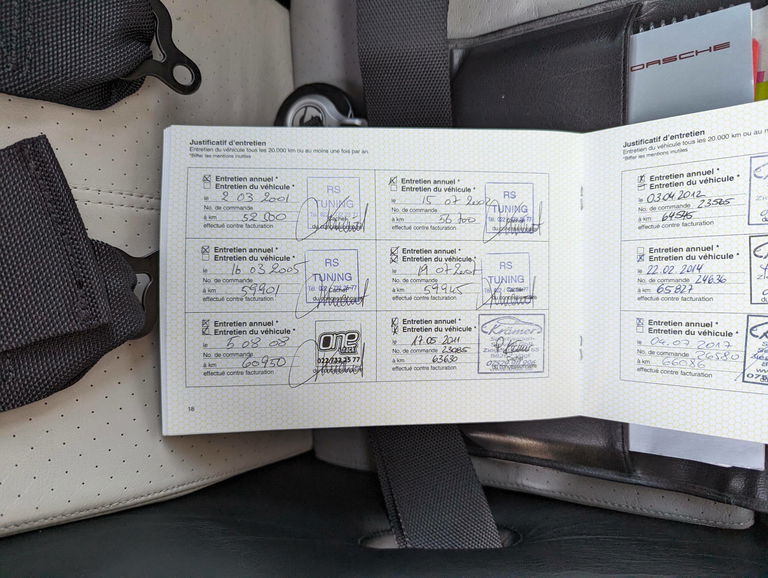 PORSCHE
Justificatif d'entretien
Entretien du véhicule tous les 20.000 km ou au moins une fois par an.
*Biffer les mentions inutiles
Entretien annuel *
Entretien du véhicule *
le 2 03 2001
No. de commande
à km 52 000
effectué contre facturation
RS
TUNING
Entretien annuel *
Entretien du véhicule *
le 15 07 2002
No. de commande
à km 56 700
effectué contre facturation
RS
TUNING
Entretien annuel *
Entretien du véhicule *
le 16 03 2005
No. de commande
à km 59901
effectué contre facturation
RS
TUNING
Entretien annuel *
Entretien du véhicule *
le 19 07
No. de commande
à km 59945
effectué contre facturation
RS
TUNING
Entretien annuel *
Entretien du véhicule *
le 5 08 08
No. de commande
à km 60950
effectué contre facturation
one
Entretien annuel *
Entretien du véhicule *
le 17.05 2011
No. de commande 23085
à km 63630
effectué contre facturation
Krämer
18
Justificatif d'entretien
Entretien du véhicule tous les 20.000 km ou au
*Biffer les mentions inutiles
Entretien annuel *
Entretien du véhicule *
le 03.04.2012
No. de commande 23565
à km 64545
effectué contre facturation
Entretien annuel *
Entretien du véhicule *
le 22.02.2014
No. de commande 24636
à km 65827
effectué contre facturation
Entretien annuel *
Entretien du véhicule *
le 04.07.2017
No. de commande 26580
à km 66086
effectué contre facturation